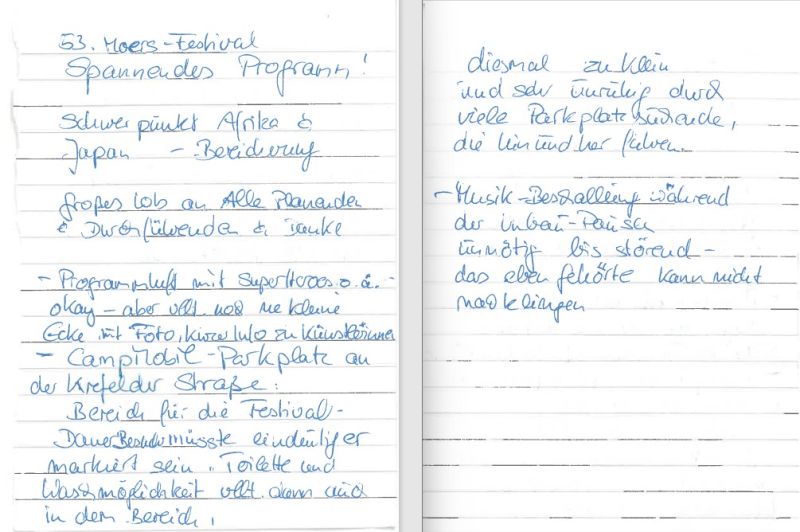 53. Moers-Festival
Spannendes Programm!
Schwerpunkt Afrika &
Japan – Bereicherung
großes Lob an Alle Planenden
& Durchführenden & Danke
- Programmheft mit Superheros o.ä. -
okay – aber vllt. noch ne kleine
Ecke mit Foto, kurze Info zu KünstlerInnen
- CampMobil-Parkplatz an
der Krefelder Straße:
Bereich für die Festival-
DauerBesucher müsste eindeutiger
markiert sein. Toilette und
Waschmöglichkeit vllt. dann auch
in dem Bereich,
diesmal zu klein
und sehr unruhig durch
viele Parkplatzsuchende,
die hin und her fuhren.
- Musik-Beschallung während
der Umbau-Pausen
unnötig bis störend -
das eben gehörte kann nicht
nachklingen